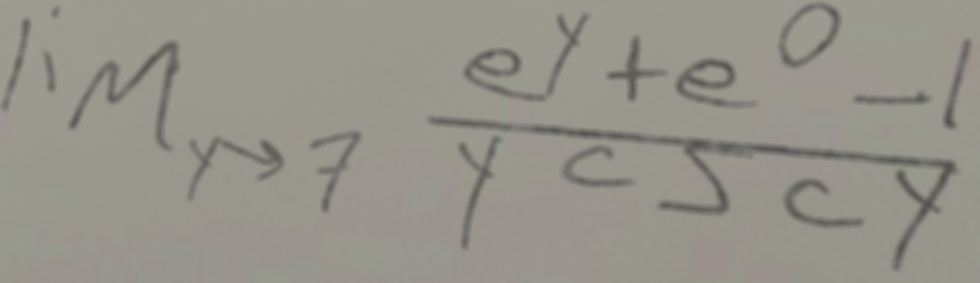 \lim_{y \to 7} \frac{e^y + e^0 - 1}{y \csc y}